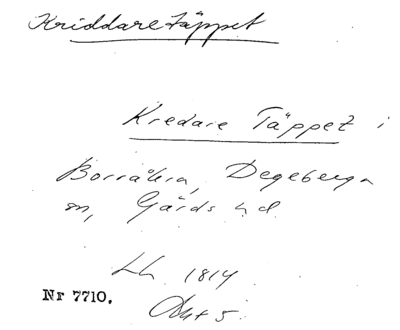 Kriddare Täppet
Kredare Täppet i
Borråkra, Degeberga
sn, Gärds hd.
Lh 1814
Nr 7710.
Akt 5.